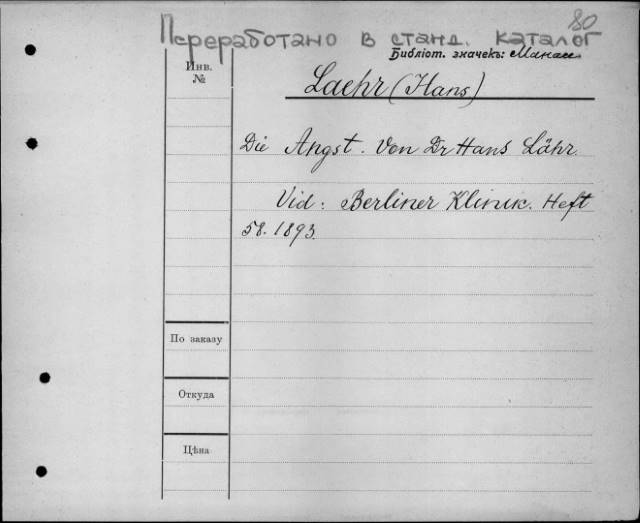 80
Переработано в станд. каталог
Библіот. значекъ:
Инв.
№
Laehr (Hans)
Die Angst. Von Dr Hans Lähr.
Vid: Berliner Klinik. Heft
58. 1893.
По заказу
Откуда
Цѣна